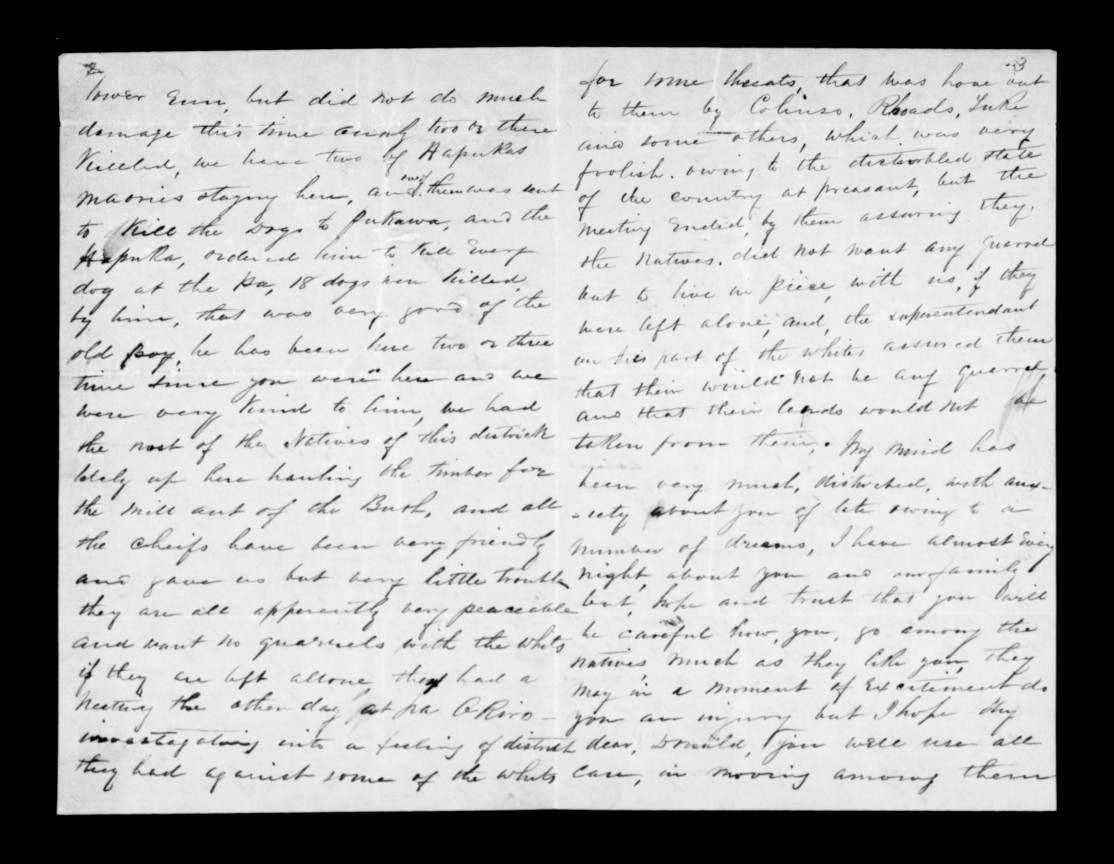 2
lower Ewe, but did not do much
damage this time only two or three
Killed, we have two of Hapukas
maories staying here, and one of them was sent
to Kill the Dogs to Pukawa, and the
Hapuka, ordered him to Kill Every
dog at the Pa, 18 dogs were Killed,
by him, that was very good of the
old boy, he has been here two or three
time since you were here and we
were very Kind to him, we had
the rest of the Natives of this districk
lately up here hauling the timber for
the Mill out of the Bush, and all
the cheifs have been very friendly
and gave us but very little trouble
they are all apperently very peaceible
and want no quarrels with the Whits
if they are left allone, they had a
Meeting the other day at pa
investagatoing into a feeling of distrest
they had against some of the Whits
3
for some threats, that was hove out
to them by Colinso, Rhoads, Tuke
and some others, which was very
foolish. owing to the disturbled state
of the country at preasant, but the
Meeting Ended, by them assuring they.
the Natives. did not want any quarrel
but to live in piece, with us, if they
were left alone, and, the superentendant
on his part of the whites assured them
that their would not be any quarrel,
and that their lands would not be
taken from them. My mind has
been very much, disturbed, with anx-
-iety about you of late owing to a
number of dreams, I have almost Every
night, about you and our family
but, hope and trust that you will
be careful how, you, go among the
natives, much as they like you, they
may, in a moment of Excitiment do
you an injury but I hope My
dear, Donald, you will use all
care, in moving among them